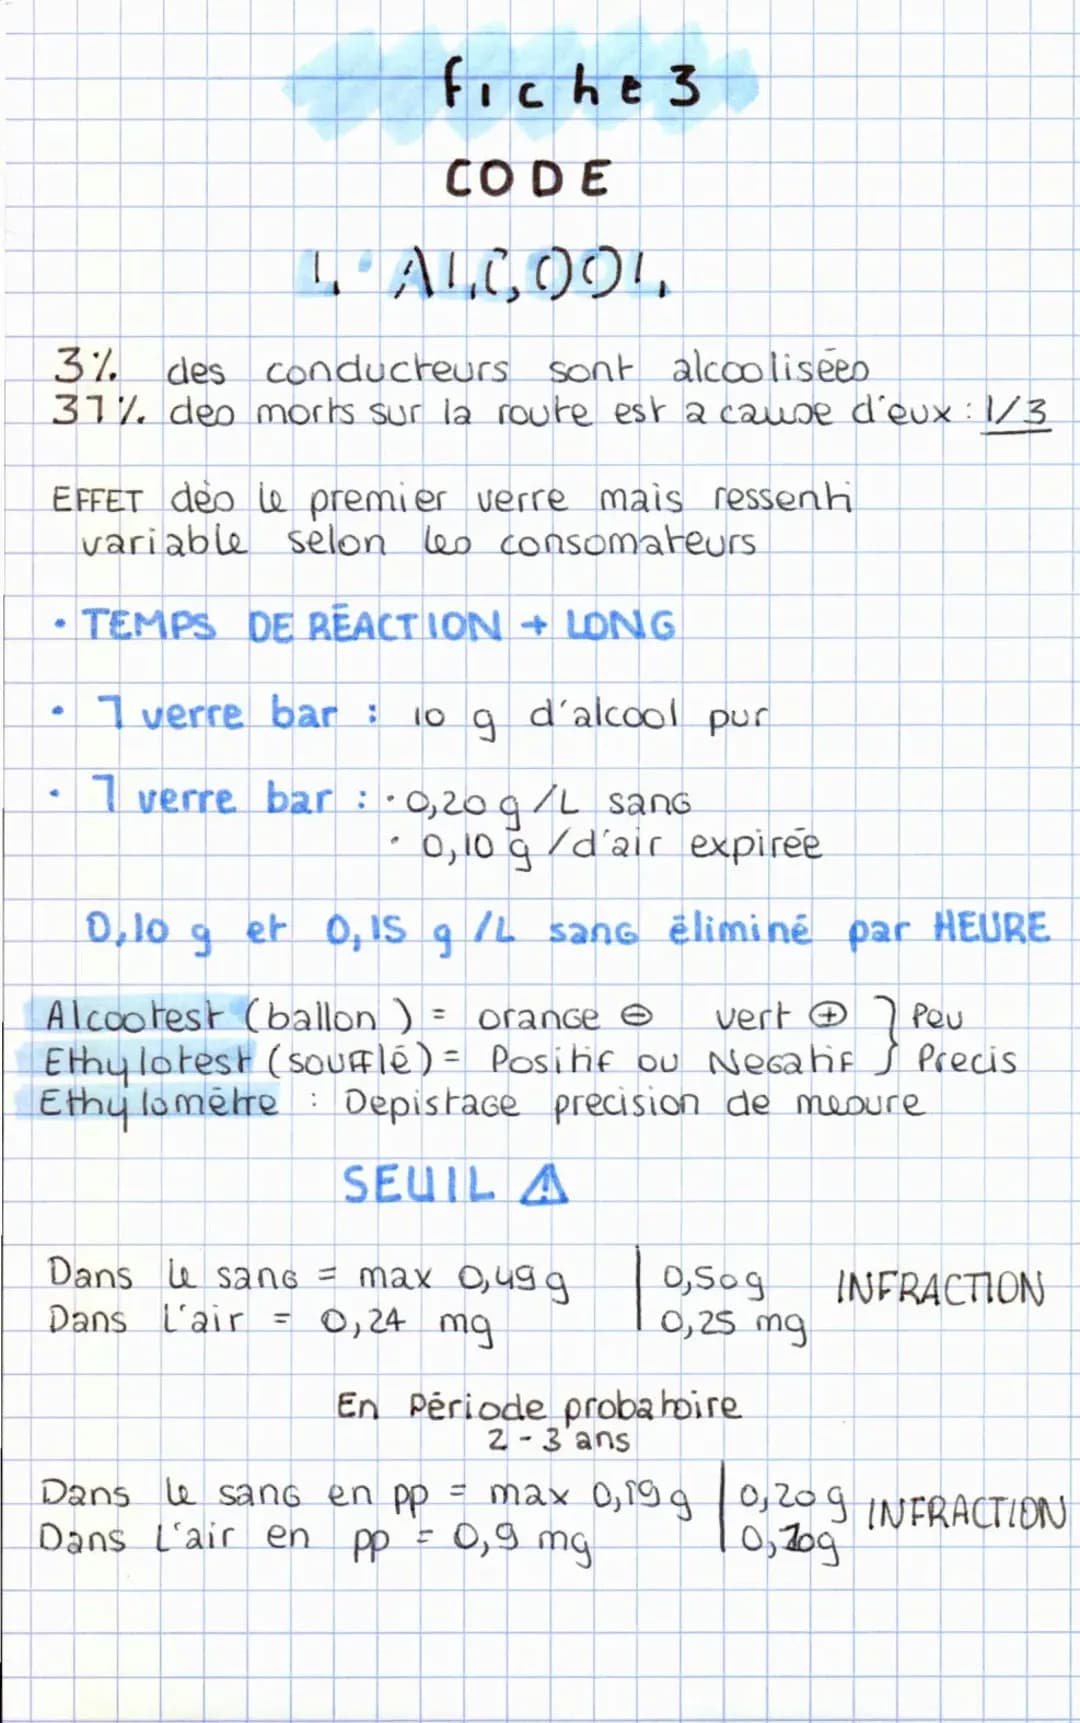 fiche 3
CODE
L'ALCOOL
3% des conducteurs sont alcoolisées
31% des morts sur la route est a cause d'eux : 1/3
EFFET dès le premier verre mais ressenti
variable selon les consomateurs
• TEMPS DE RÉACTION + LONG
• 1 verre bar : 10 g d'alcool pur
• 1 verre bar : • 0,20 g/L sang
• 0,10 g /d'air expirée
0,10 g et 0,15 g/L sang éliminé par HEURE
Alcootest (ballon) = orange ⊖ vert ⊕ } Peu
Ethylotest (soufflé) = Positif ou Negatif } Precis
Ethylomètre : Depistage precision de mesure
SEUIL ⚠
Dans le sang = max 0,49 g | 0,50g INFRACTION
Dans l'air = 0,24 mg | 0,25 mg
En Période probatoire
2 - 3 ans
Dans le sang en pp = max 0,19 g | 0,20 g INFRACTION
Dans l'air en pp = 0,9 mg | 0,10g